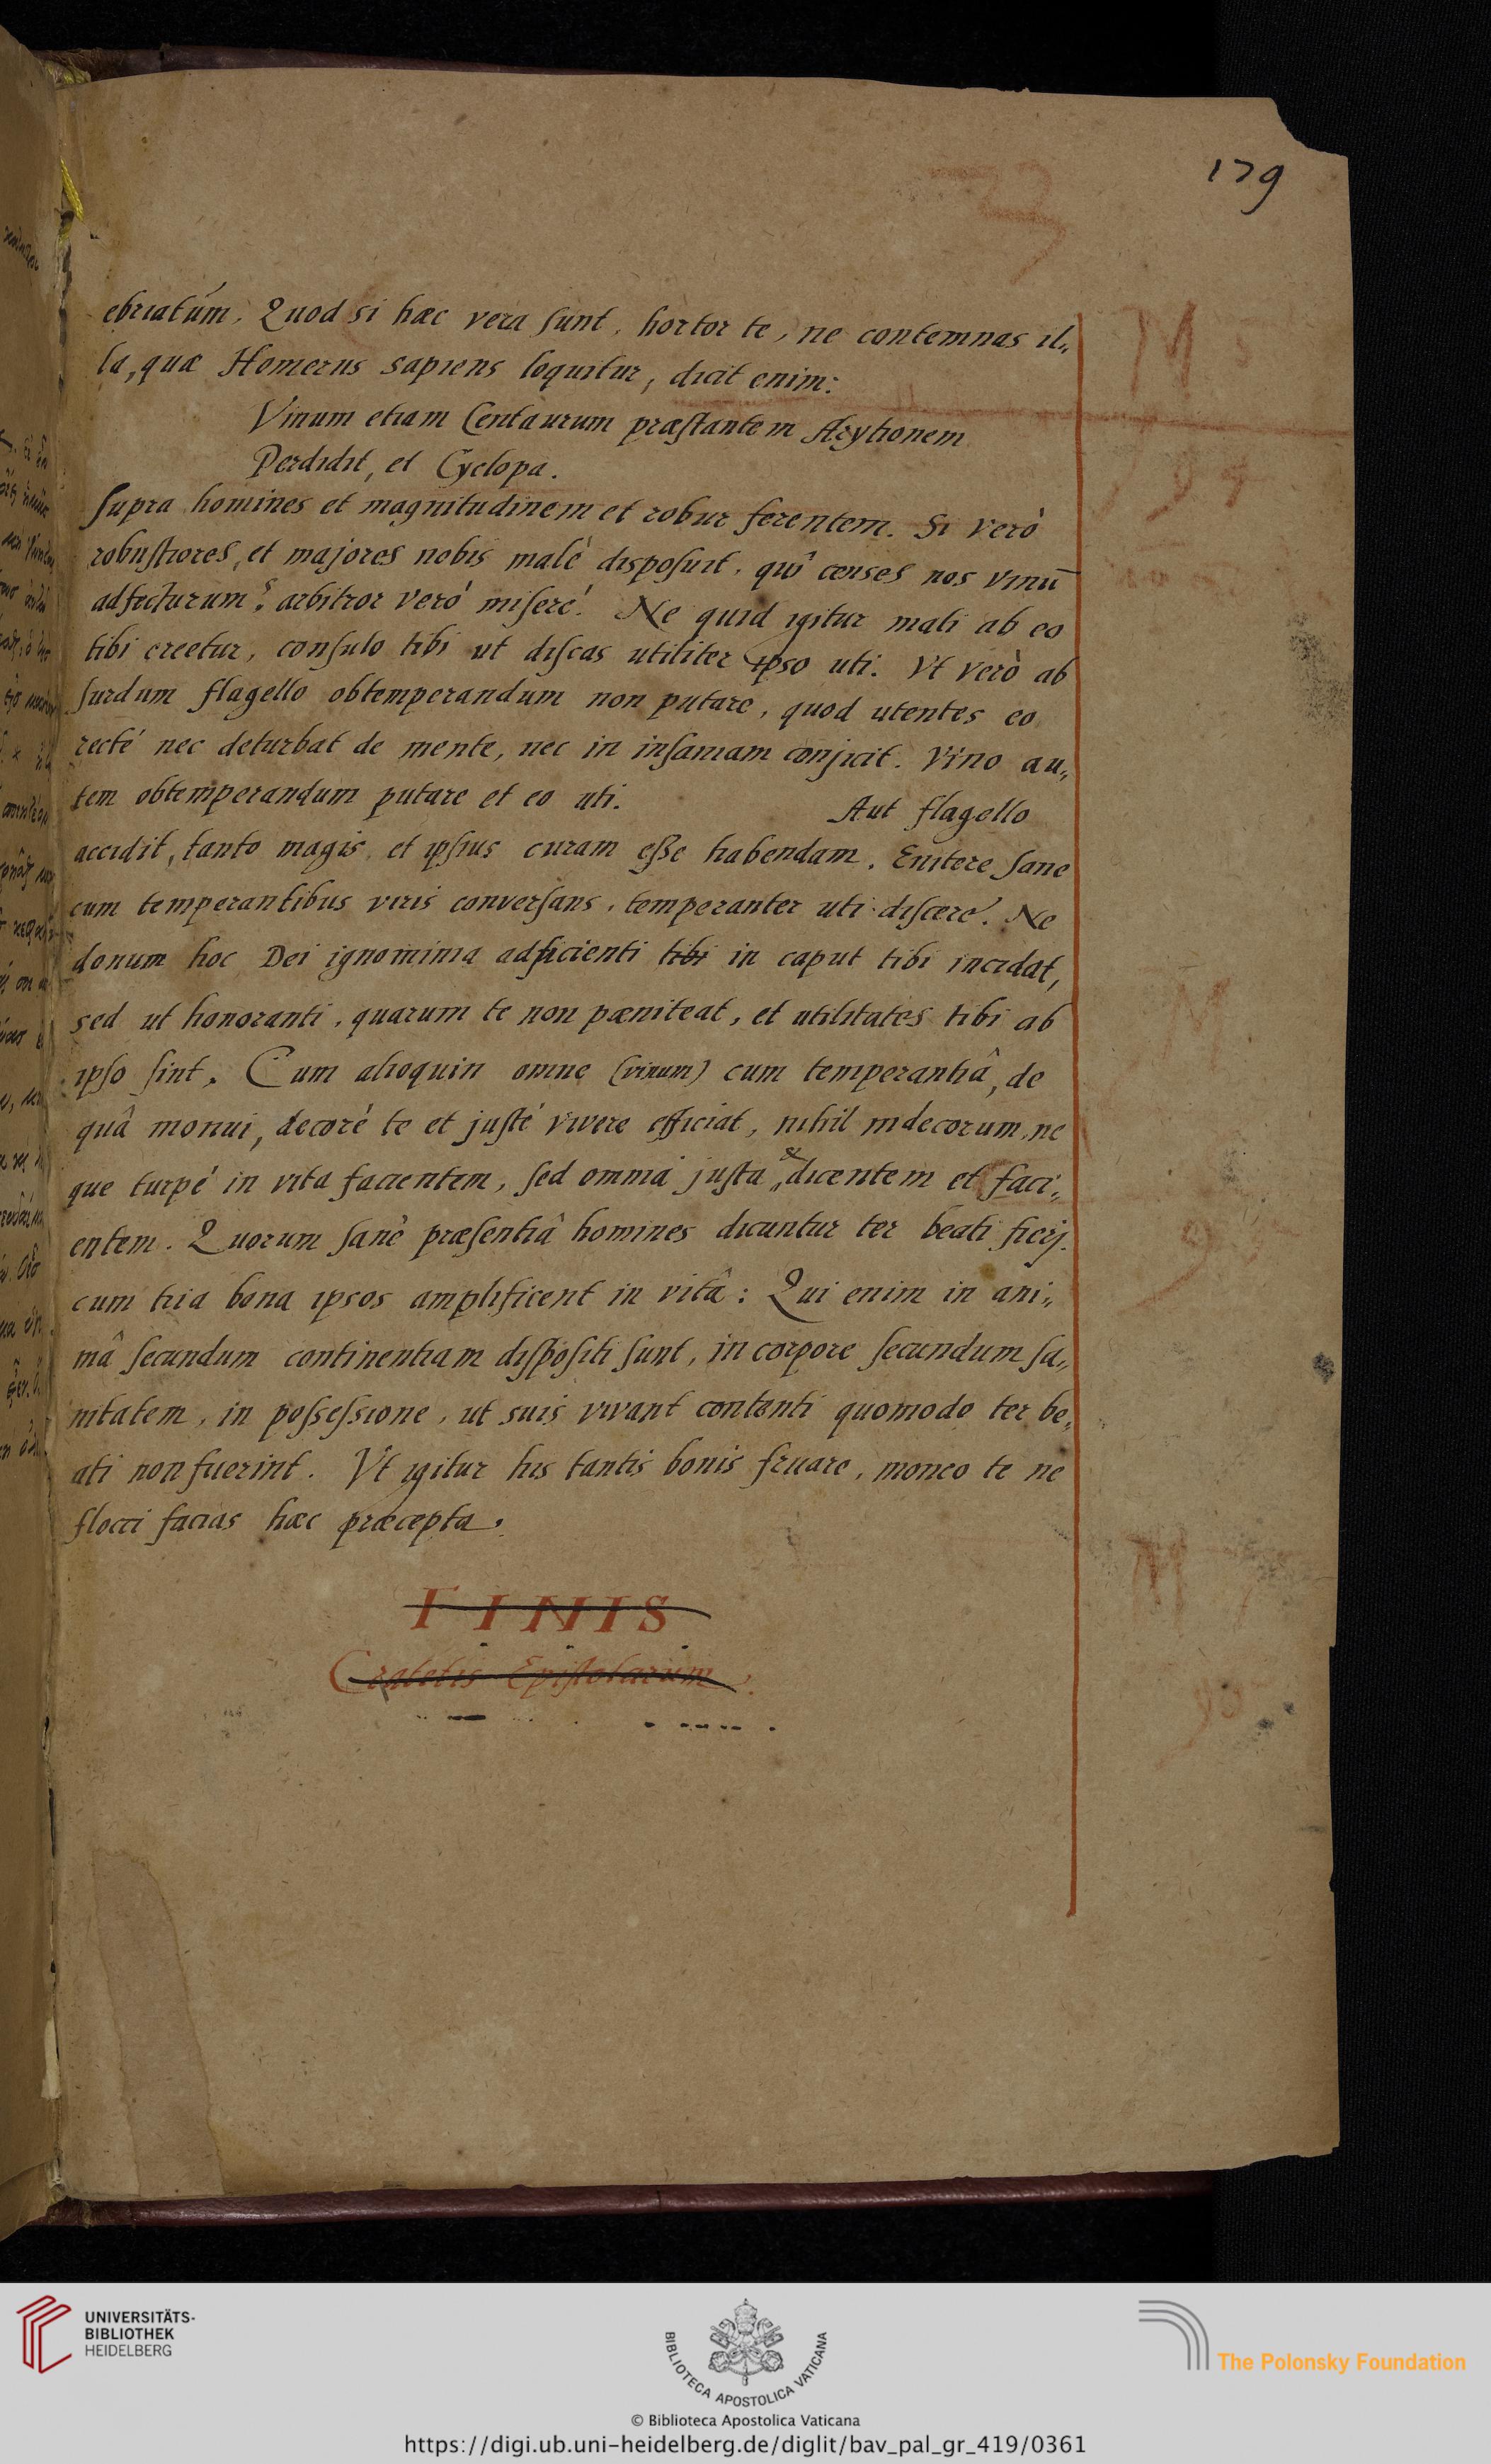 179
ebriatum, Quod si hæc vera sunt, hortor te, ne contemnas il„
la, quæ Homerus sapiens loquitur, dicit enim:
Vinum etiam Centaurum præstantem
Perdidit, et Cyclopa.
supra homines et magnitudinem et robur ferentem. Si verò
robustiores, et majores nobis malè disposuit, quî censes nos vinū
adfecturum? arbitror veró miseré. Ne quid igitur mali ab eo
tibi creetur, consulo tibi ut discas utiliter ipso uti. Vt verò ab
surdum flagello obtemperandum non putare, quod utentes eo
recté nec deturbat de mente, nec in insaniam conjicit. Vino au„
tem obtemperandum putare et eo uti. Aut flagello
accidit, tanto magis et ipsius curam esse habendam. Enitere sane
cum temperantibus viris conversans, temperanter uti discere. Ne
donum hoc Dei ignominia adficienti tibi in caput tibi incidat,
sed ut honoranti, quarum te non pæniteat, et utilitates tibi ab
ipso sint. Cum alioquin omne (vinum) cum temperantiâ, de
quâ monui, decoré te et justé vivere efficiat, nihil indecorum, ne
que turpé in vita facientem, sed omnia justa & dicentem et faci„
entem. Quorum sanè præsentiâ homines dicuntur ter beati fierj.
cum tria bona ipsos amplificent in vitâ: Qui enim in ani„
mâ secundum continentiam dispositi sunt, in corpore secundum sa„
nitatem, in possessione, ut suis vivant contenti quomodo ter be„
ati non fuerint. Vt igitur his tantis bonis fruare, moneo te ne
flocci facias hæc præcepta.
FINIS
Cratetis Epistolarum.
UNIVERSITÄTS-
BIBLIOTHEK
HEIDELBERG
BIBLIOTECA APOSTOLICA VATICANA
The Polonsky Foundation
© Biblioteca Apostolica Vaticana
https://digi.ub.uni-heidelberg.de/diglit/bav_pal_gr_419/0361